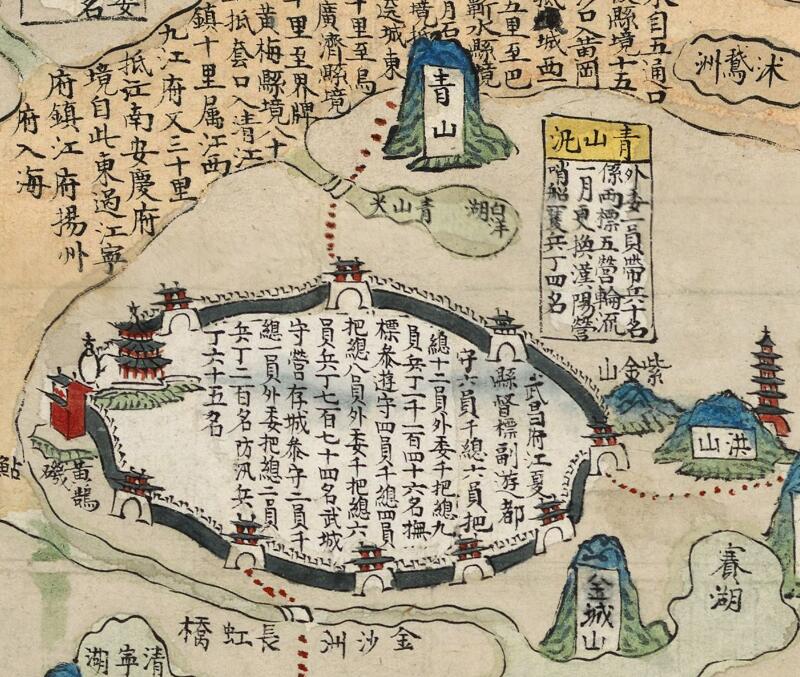 水自五通口
㳇縣境十五
沙口入當岡
抵城西
五里至巴
蘄水縣境
城東
十里至烏
廣濟縣境
十里至界牌
黃梅縣境八十
一抵套口入青江
鎮十里属江西
九江府又三十里
抵江南安慶府
境自此東過江寧
府鎮江府揚州
府入海
沭鵞洲
青山
青山汛
外委一員帶兵十名
係兩標五營輪流
一月更換漢陽營
哨船一隻兵丁四名
青山
白洋湖
紫金山
洪山
武昌府江夏
縣督標副游都
守六員千總六員把
總十二員外委千把總九
員兵丁一千一百四十六名撫
標參遊守四員千總四員
把總八員外委千把總六
員兵丁七百七十四名武城
守營存城參守二員千
總一員外委把總二員
兵丁二百名防汛兵
丁六十五名
黃鵠磯
鮎
金城山
賽湖
金沙洲
長虹橋
清寧湖